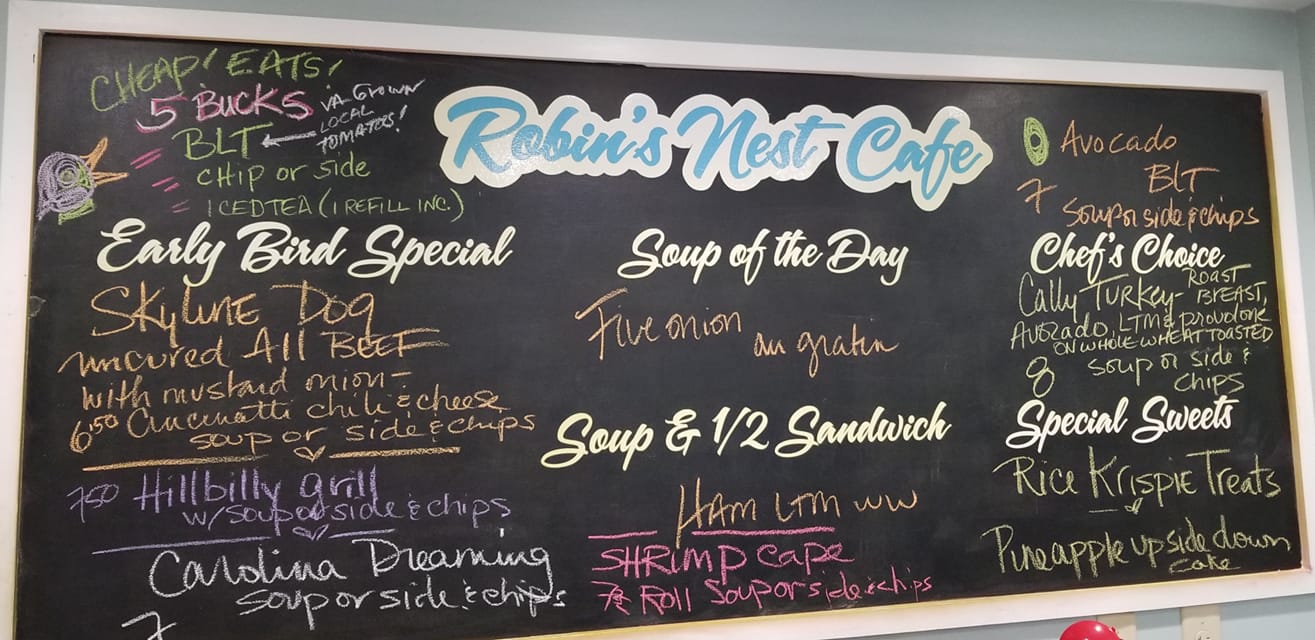 CHEAP! EATS!
5 BUCKS
BLT
VA GROWN
LOCAL
TOMATOS!
CHIP or side
ICEDTEA (1 REFILL INC.)
Robin's Nest Cafe
Avocado
BLT
7 Soup or side & chips
Early Bird Special
Skyline Dog
uncured All BEEF
with mustard onion-
6.50 Cincinatti chili & cheese
soup or side & chips
7.50 Hillbilly grill
w/soup or side & chips
Carolina Dreaming
soup or side & chips
7
Soup of the Day
Five onion au gratin
Soup & 1/2 Sandwich
HAM LTM WW
SHRIMP CAPE
Roll Soup or side & chips
Chef's Choice
Cally Turkey- ROAST
BREAST,
Avozado, LTM & provolone
ON WHOLE WHEAT TOASTED
8 soup or side &
chips
Special Sweets
Rice Krispie Treats
Pineapple upside down
cake